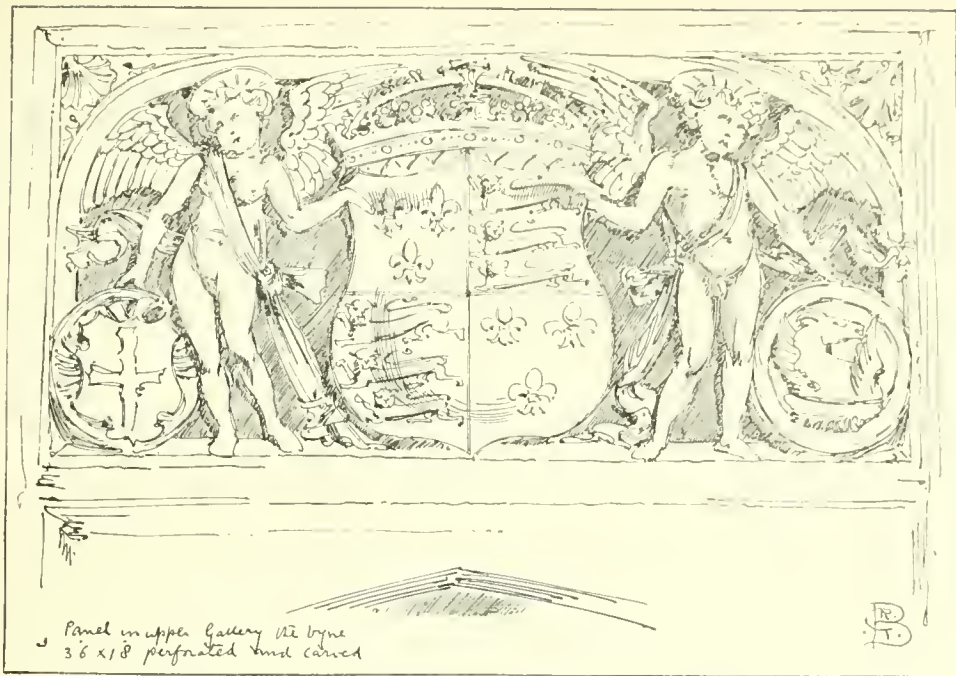 Panel in upper Gallery the Vyne
3.6 x 1.8 perforated and carved
R.
B
.T.